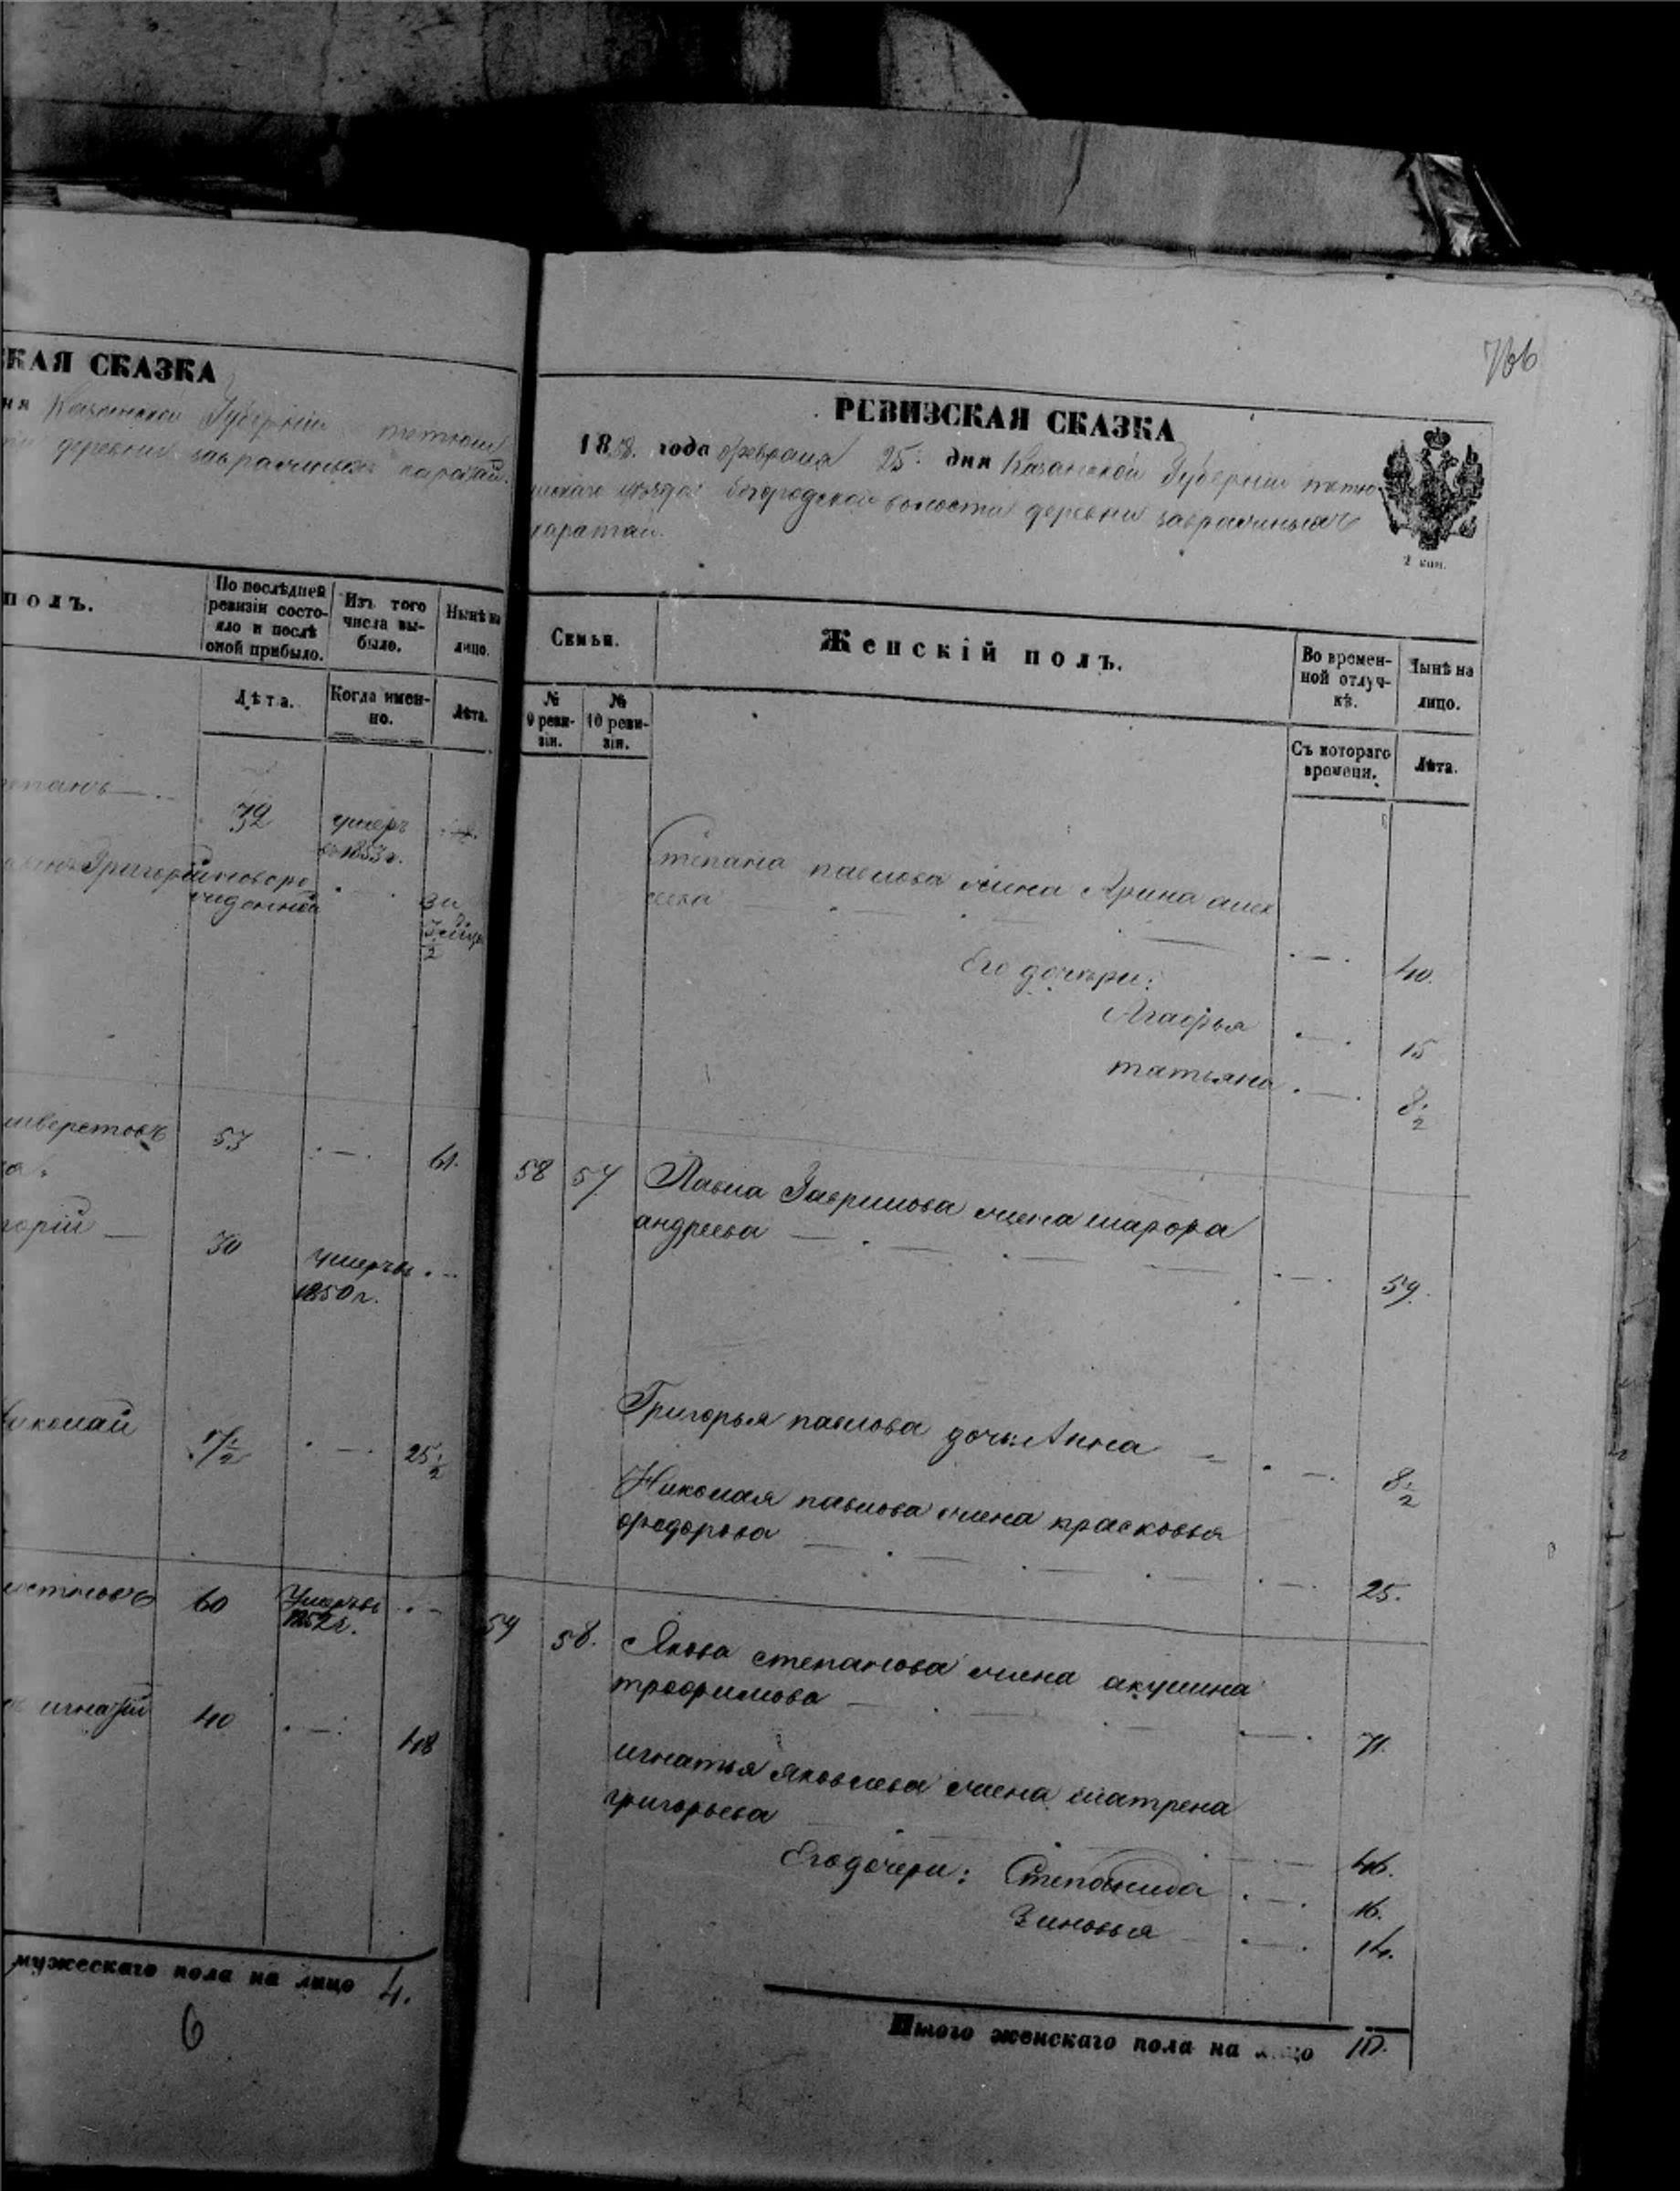 КАЯ СКАЗКА
ня Казанской Губерніи тетюш
деревни завралиныхъ каратай.
полъ.
По послѣдней ревизіи состо-
яло и послѣ
оной прибыло.
Изъ того
числа вы-
было.
Нынѣ на
лицо.
Лѣта.
Когда имен-
но.
Лѣта.
72
умеръ
въ 1853 г.
Григорій новоро
жденной
3 и
53
61.
горій
30
умеръ въ
1850 г.
Николай
17 1/2
25 1/2
60
Умеръ въ
1852 г.
игнатій
40
48
мужескаго пола на лицо 4.
6
766
РЕВИЗСКАЯ СКАЗКА
1858. года февраля 25. дня Казанской Губерніи тетю
шскаго уѣзда богородской волости деревни завралиныхъ
каратай.
2 коп.
Семьи.
Женскій полъ.
Во времен-
ной отлуч-
кѣ.
Нынѣ на
лицо.
№
9 реви-
зіи.
№
10 реви-
зіи.
Съ котораго
времени.
Лѣта.
Степана павлова жена Арина алек
сеева
40.
Его дочери:
Агафья 15
татьяна 8 1/2
58 57 Павла Гаврилова жена марфа
андреева
59.
Григорья павлова дочь Анна 8 1/2
Николая павлова жена прасковья
федорова
25.
59 58. Якова степанова жена акулина
трофимова
71.
игнатья яковлева жена матрена
григорьева
46.
Его дочери: Степанида 16.
Зиновья 14.
Итого женскаго пола на лицо 10.